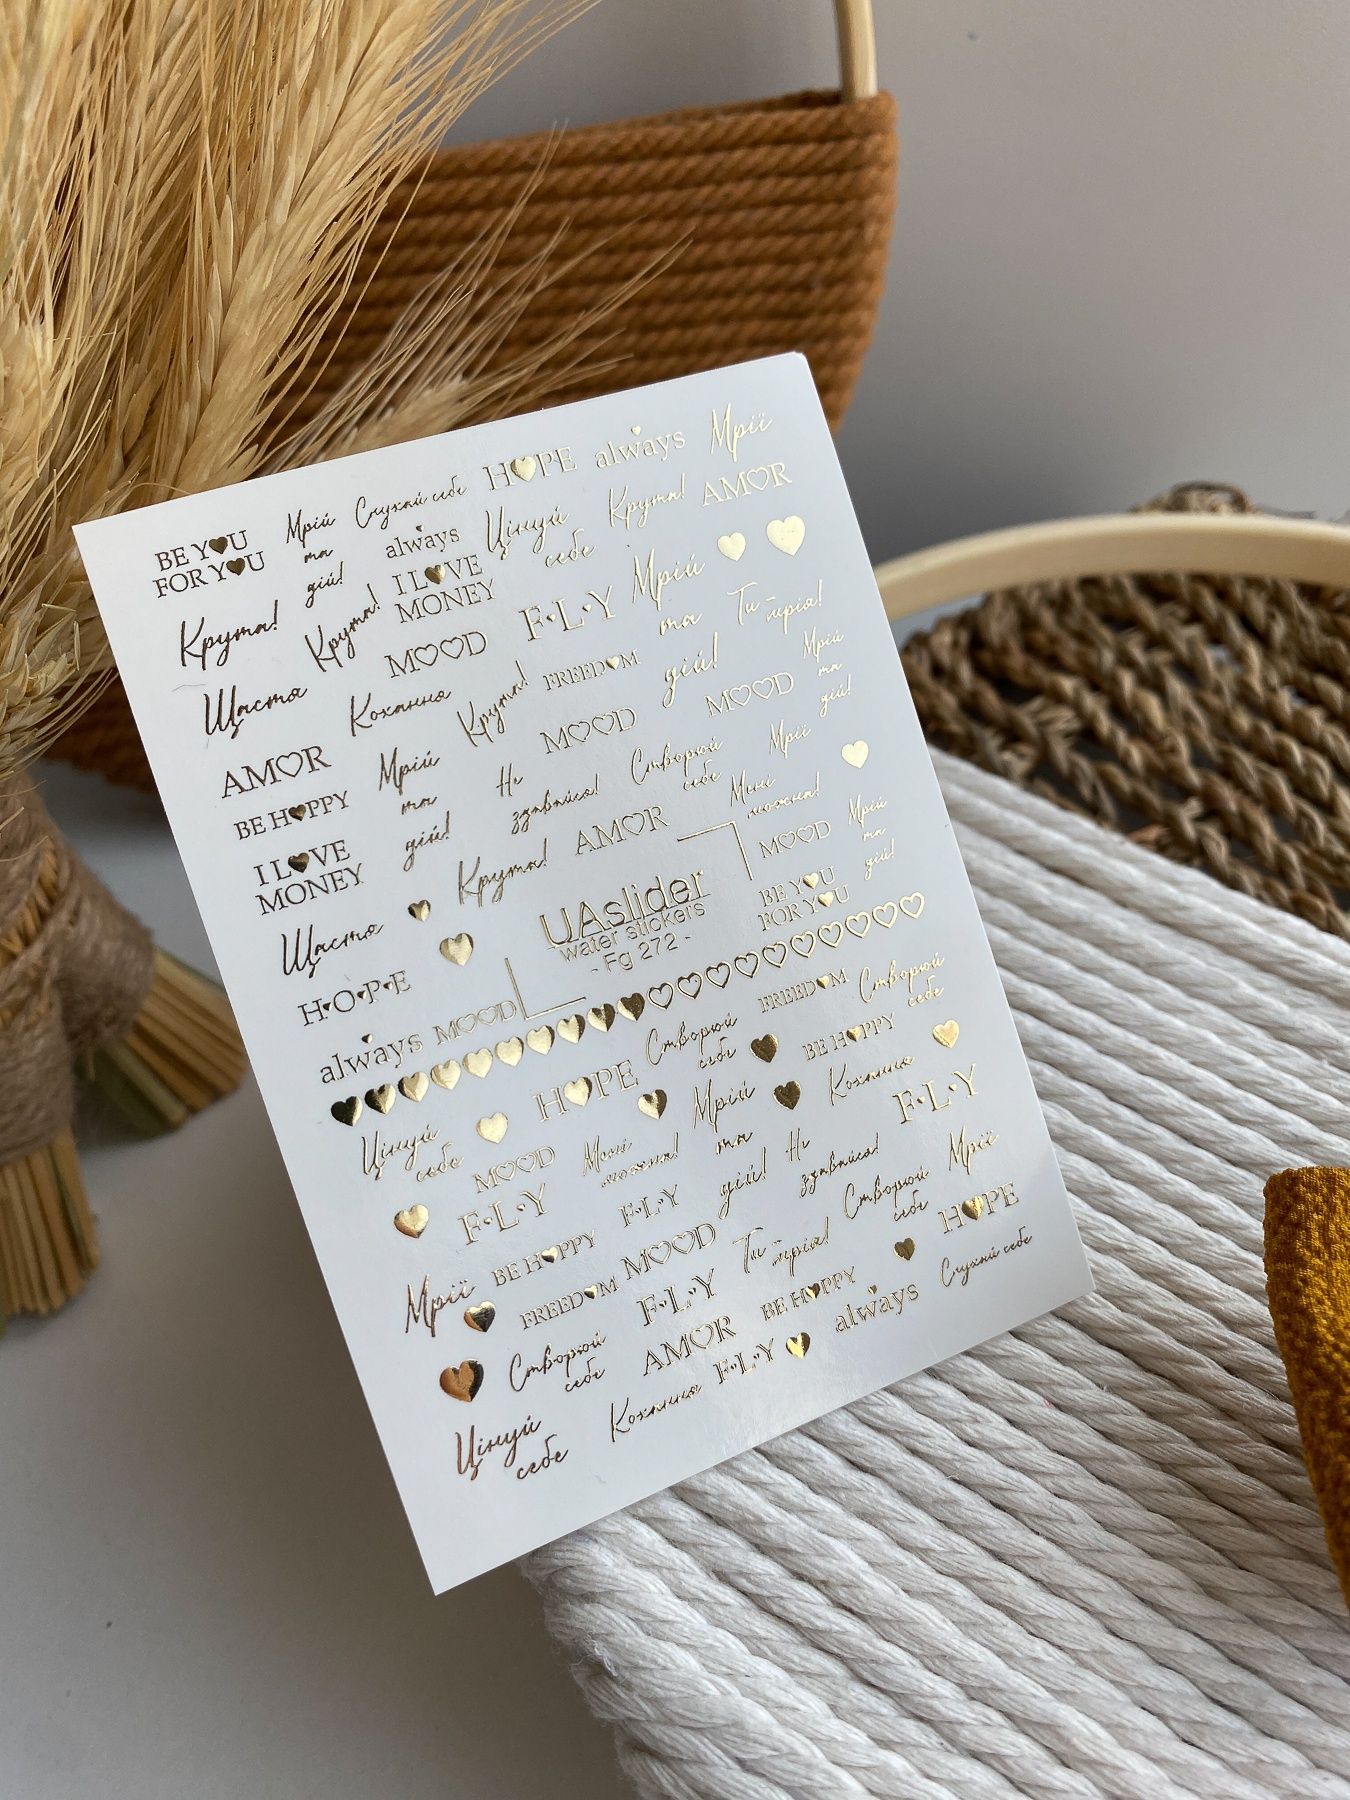 HOPE always Мрії
BE YOU Мрій Слухай себе
FOR YOU та always Цінуй Крута! AMOR
дій! I LOVE себе
Крута! Крута! MONEY F·L·Y Мрій
MOOD та Ти - мрія!
Щастя Кохання Крута! FREEDOM дій! Мрій
AMOR Мрій MOOD MOOD та
BE HAPPY та Не Створюй Мрії дій!
дій! здавайся! себе Мені
I LOVE Крута! AMOR можна! Мрій
MONEY MOOD та
Щастя UAslider BE YOU дій!
H·O·P·E water stickers FOR YOU
- Fg 272 -
always MOOD FREEDOM Створюй
HOPE Створюй себе
Цінуй себе BE HAPPY
себе MOOD Мені Мрій Кохання
F·L·Y можна! та F·L·Y
F·L·Y дій! Не
Мрії BE HAPPY MOOD здавайся! Створюй Мрії
FREEDOM Ти - мрія! себе HOPE
Створюй F·L·Y BE HAPPY Слухай себе
себе AMOR always
Цінуй Кохання F·L·Y
себе